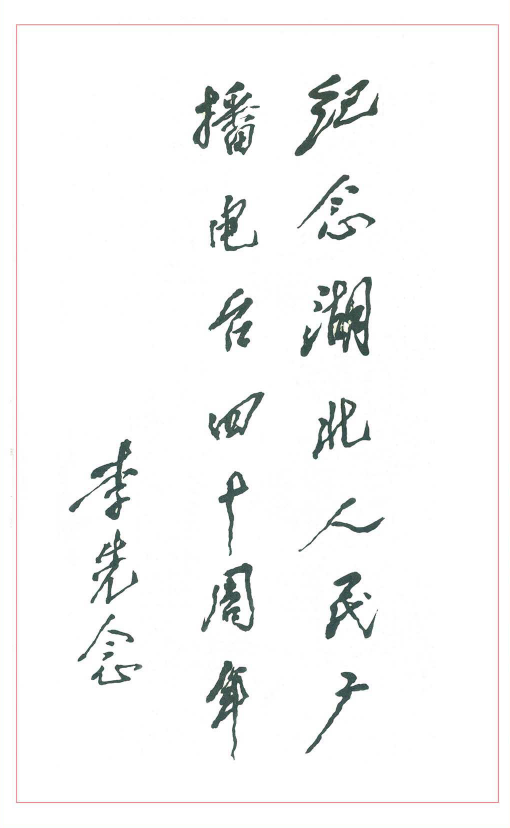 纪念湖北人民广
播电台四十周年
李先念